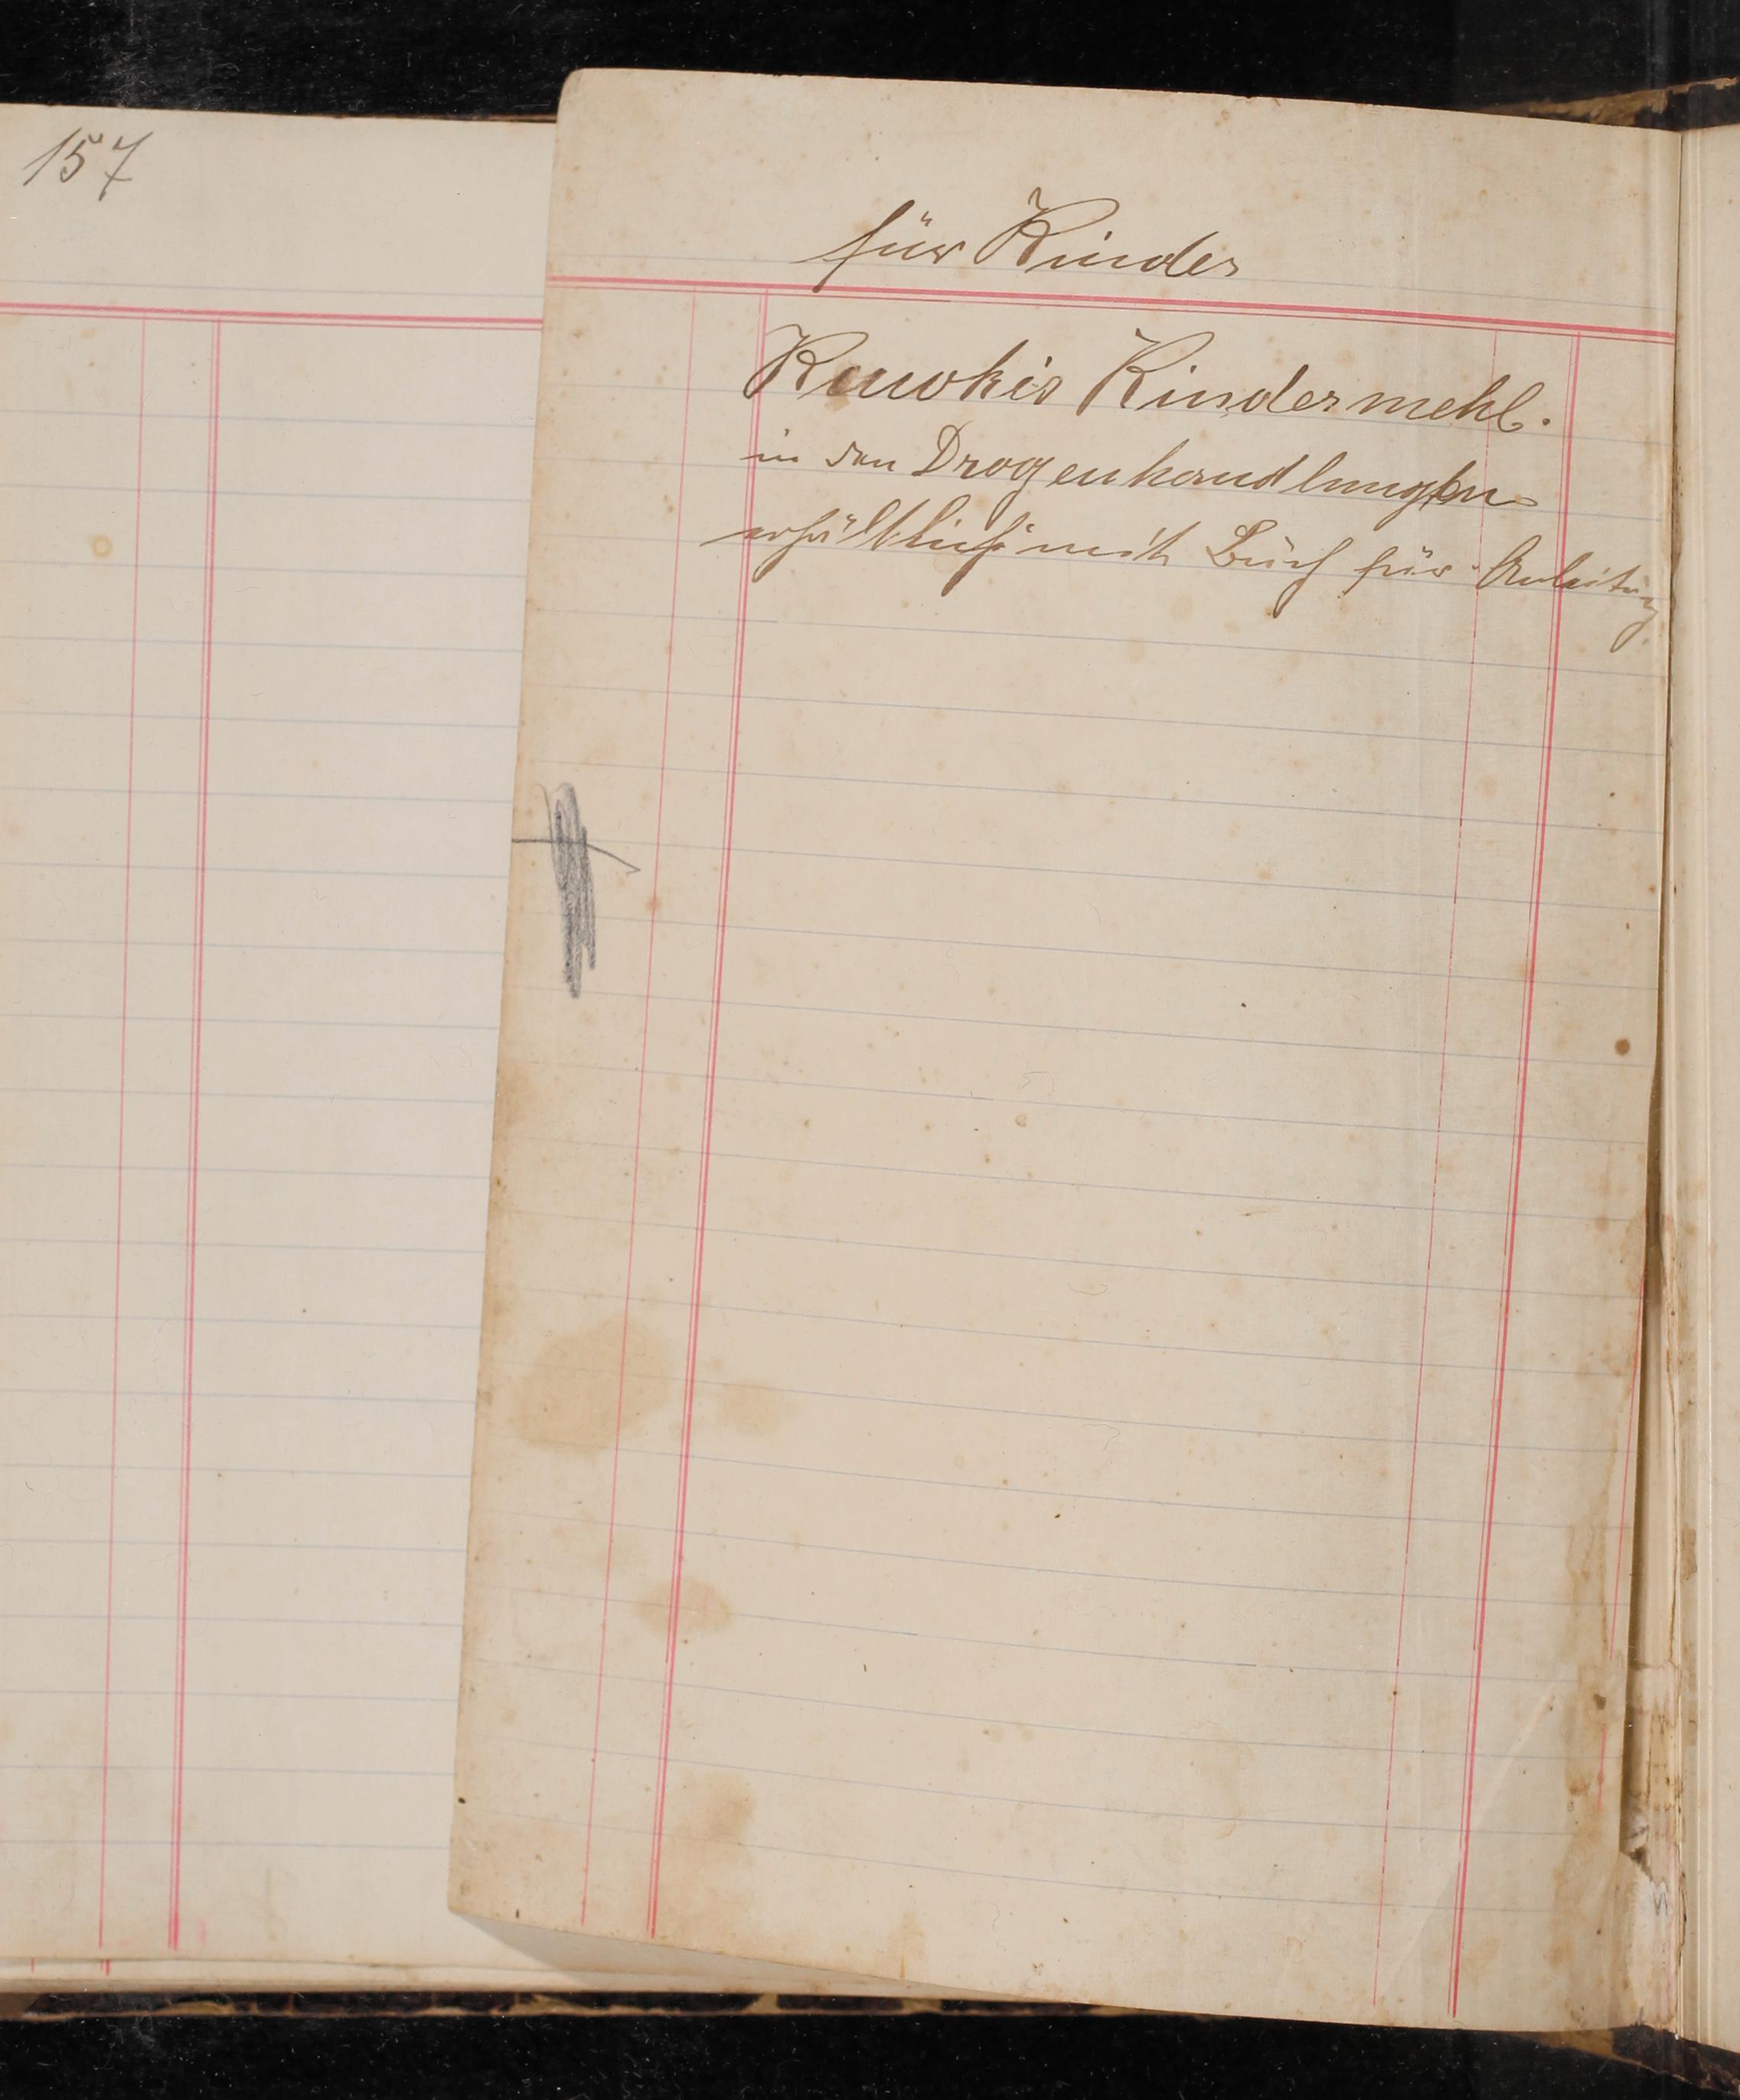 157
für Kinder
Kuwkes Kindermehl.
in den Drogenhandlungen
erhältlich mit Buch für Anleitung.